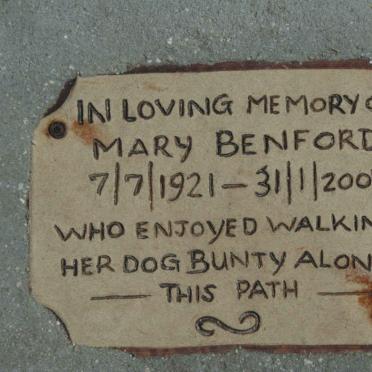 IN LOVING MEMORY O
MARY BENFORD
7/7/1921 – 31/1/200
WHO ENJOYED WALKIN
HER DOG BUNTY ALON
THIS PATH